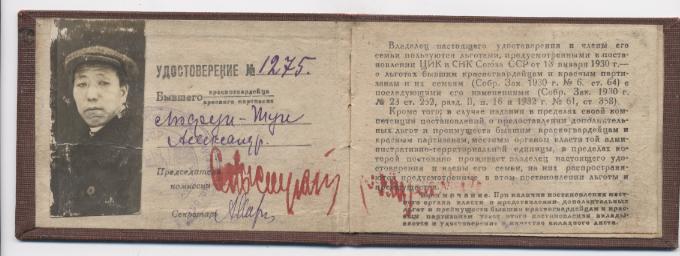 УДОСТОВЕРЕНИЕ № 1275.
Бывшего красногвардейца
красного партизана
Александр.
Председатель
комиссии
Секретарь
Владелец настоящего удостоверения и члены его
семьи пользуются льготами, предусмотренными в поста-
новлении ЦИК и СНК Союза ССР от 13 января 1930 г.—
о льготах бывшим красногвардейцам и красным парти-
занам и их семьям (Собр. Зак. 1930 г. № 6, ст. 64) с
последующими его изменениями (Собр. Зак. 1930 г.
№ 23 ст. 252, разд. II, п. 16 и 1932 г. № 61, ст. 358).
Кроме того, в случае издания в пределах своей ком-
петенции постановлений, о предоставлении дополнитель-
ных льгот и преимуществ бывшим красногвардейцам и
красным партизанам, местными органами власти той админи-
стративно-территориальной единицы, в пределах ко-
торой постоянно проживает владелец настоящего удо-
стоверения и члены его семьи, на них распростра-
няются предусмотренные в этом постановлении льготы и
преимущества.
Примечание. При наличии постановления мест-
ного органа власти о предоставлении дополнительных
льгот и преимуществ бывшим красногвардейцам и крас-
ным партизанам текст этого постановления вклады-
вается в удостоверение в качестве вкладного листа.